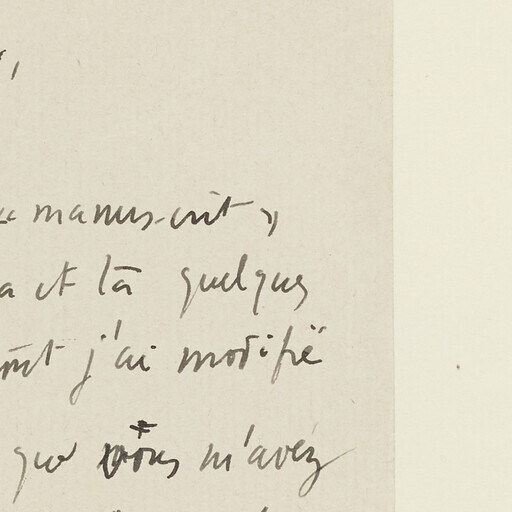 manuscrit »
et là quelques
j'ai modifié
que vous m'avez